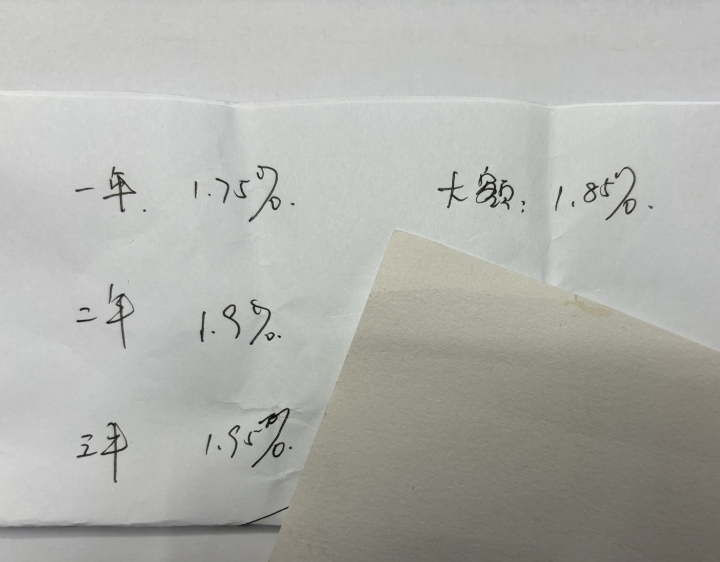 一年. 1.75%. 大额: 1.85%.
二年 1.9%.
三年 1.95%.